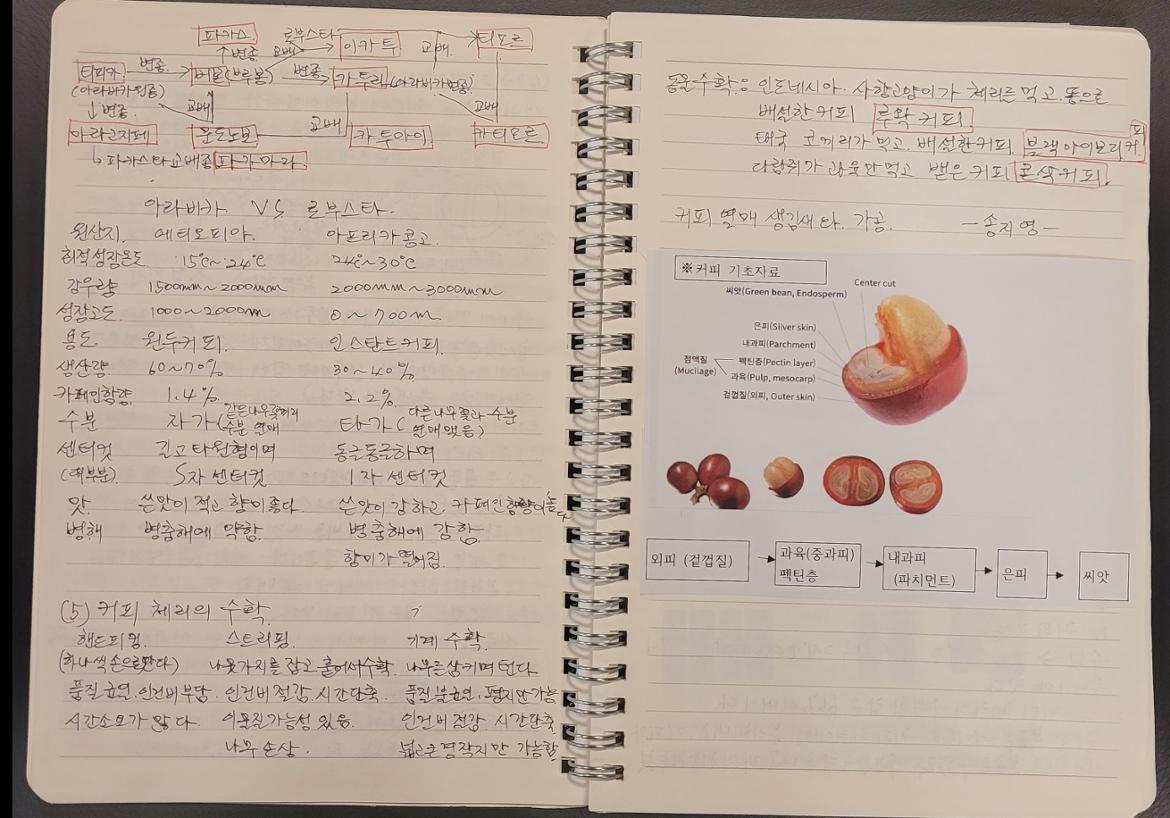 파카스. 로부스타 이카투 교배. 티모르
변종 교배
티피카 변종 버본(부르봉) 변종 카투라(아라비카변종)
(아라비카원종)
변종 교배 교배
아라고지페 문도노보 교배 카투아이 카티모르
↳파카스타교배종 파카마라
아라비카 VS 로부스타.
원산지. 에티오피아. 아프리카콩고.
최적성장온도 15℃~24℃ 24℃~30℃
강우량 1500mm~2000mm 2000mm~3000mm
성장고도 1000~2000m 0~700m
용도 원두커피. 인스탄트커피.
생산량 60~70% 30~40%
카페인함량 1.4% 2.2%
수분 자가( 같은나무꽃끼리 수분 열매 타가( 다른나무꽃과 수분 열매맺음)
센터컷 길고타원형이며 동글동글하며
(대부분) S자 센터컷 1자 센터컷
맛 쓴맛이 적고 향이좋다. 쓴맛이 강하고 카페인함량이높다
병해 병충해에 약함. 병충해에 강함.
향미가 떨어짐.
(5) 커피 체리의 수확.
핸드피킹. 스트리핑. 기계 수확.
(하나씩 손으로딴다) 나뭇가지를 잡고 훑어서수확 나무를 털다.
품질균일. 인건비부담. 인건비 절감. 시간단축. 품질불균일. 평지만가능
시간소모가 많다. 이물질가능성 있음. 인건비절감 시간단축
나무손상. 넓은경작지만 가능함.
동물수확은 인도네시아. 사향고양이가 체리를 먹고. 똥으로
배설한커피 루왁커피
태국 코끼리가 먹고. 배설한커피. 블랙아이보리커피
다람쥐가 과육만먹고 뱉은 커피 콘삭커피.
커피 열매 생김새와. 가공. -송지영-
※커피 기초자료
Center cut
씨앗(Green bean, Endosperm)
은피(Silver skin)
내과피(Parchment)
점액질 (Mucilage)
펙틴층(Pectin layer)
과육(Pulp, mesocarp)
겉껍질(외피, Outer skin)
외피 (겉껍질) 과육(중과피) 펙틴층 내과피 (파치먼트) 은피 씨앗